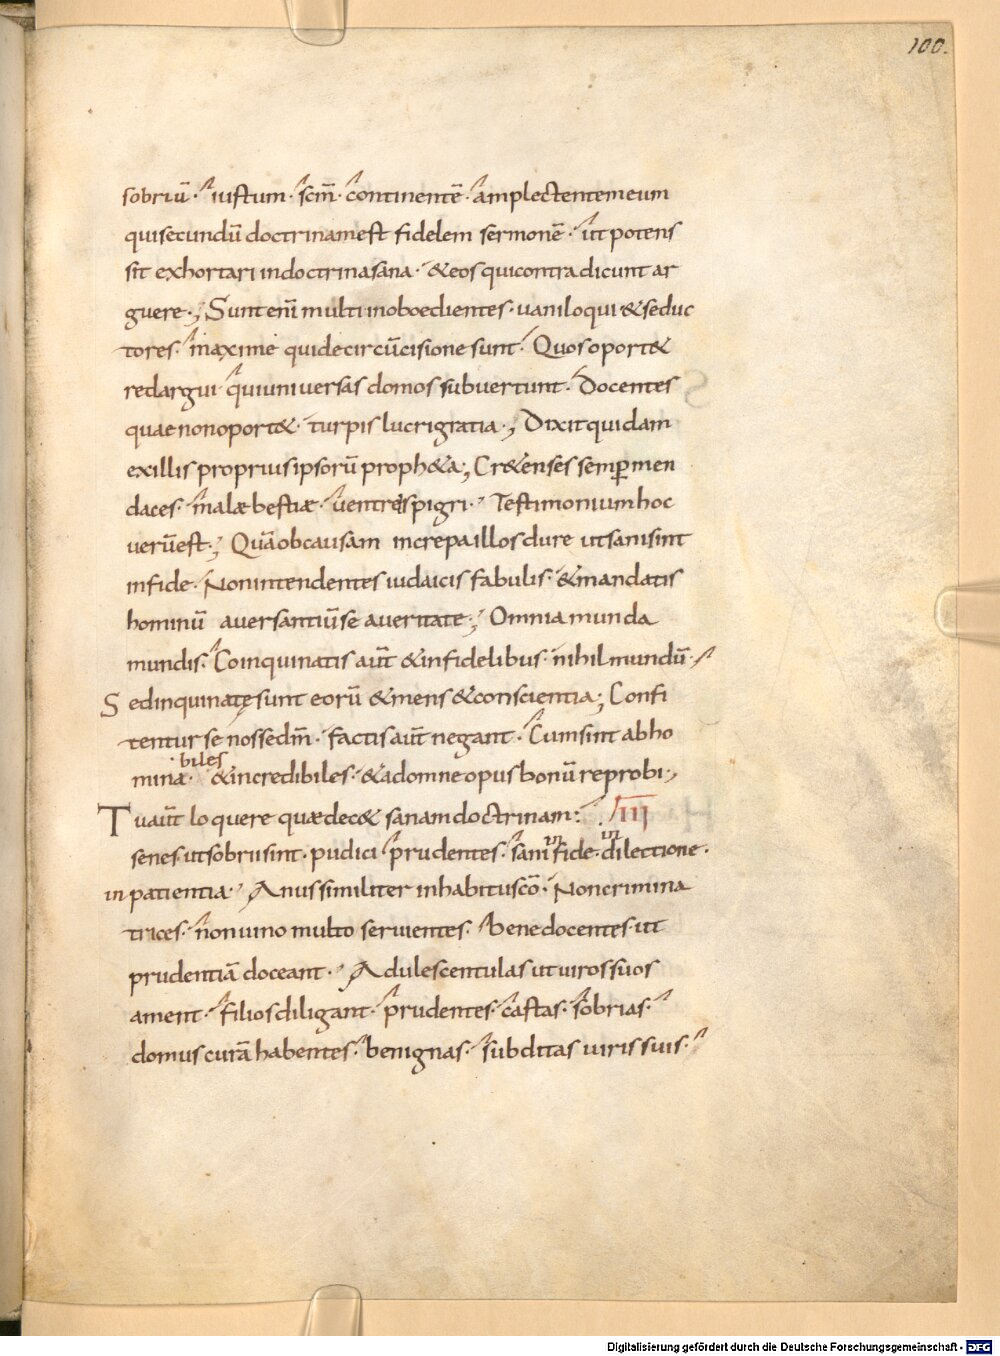 100.
sobriū· iustum· scm̄· continentē· amplectentem eum
qui secundū doctrinam est fidelem sermonē· ut potens
sit exhortari in doctrina sana· & eos qui contradicunt ar
guere·; Sunt enī multi inoboedientes· uaniloqui & seduc
tores· maxime qui de circūcisione sunt· Quos oport&
redargui· qui uniuersas domos subuertunt· Docentes
quae non oport&· turpis lucri gratia·; Dixit quidam
ex illis proprius ipsorū proph&a; Cr&enses semp̄ men
daces· malæ bestiæ· uentres pigri· Testimonium hoc
uerū est·; Quāob causam increpa illos dure ut sani sint
in fide· Non intendentes iudaicis fabulis· & mandatis
hominū auersantiū se a ueritate·; Omnia munda
mundis· Coinquinatis aūt & infidelibus· nihil mundū·
Sed inquinatę sunt eorū & mens & conscientia; Confi
tentur se nosse dm̄· factis aūt negant· Cum sint abho
·biles
mina· & incredibiles· & ad omne opus bonū reprobi·;
Tu aūt loquere quæ dec& sanam doctrinam: III
senes· ut sobrii sint· pudici· prudentes· sani in fide· in dilectione·
in patientia· Anus similiter in habitu scō· Non crimina
trices· non uino multo seruientes· bene docentes· ut
prudentiā doceant· Adulescentulas ut uiros suos
ament· filios diligant· prudentes· castas· sobrias·
domus curā habentes· benignas· subditas uiris suis·
Digitalisierung gefördert durch die Deutsche Forschungsgemeinschaft - DFG